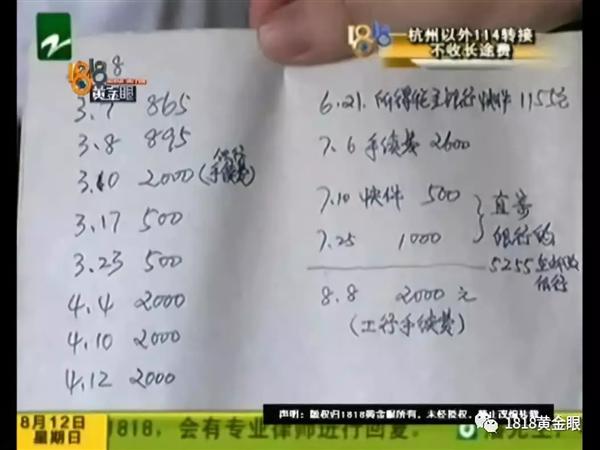 1818 杭州以外114转接
不收长途费
1818
黄金眼
3.7 865
3.8 895
3.10 2000(银行手续费)
3.17 500
3.23 500
4.4 2000
4.10 2000
4.12 2000
6.21. 所得 银行快件 1155元
7.6 手续费 2600
7.10 快件 500
7.25 1000
直寄
银行的
5255
银行
8.8 2000元
(工行手续费)
声明：版权归1818黄金眼所有，未经授权，禁止改编转载
8月12日
星期日
1818，会有专业律师进行回复。
1818黄金眼